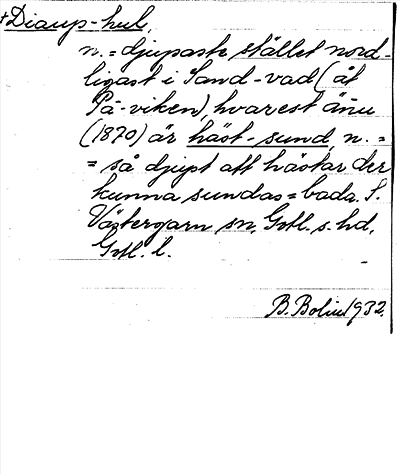 +Diaup-hul,
n. = djupaste stället nord-
ligast i Sand-vad (åt
På-viken), hvarest ännu
(1870) är häst-sund, n. =
= så djupt att hästar der
kunna sundas = bada. S.
Västergarn sn, Gotl. s. hd,
Gotl. l.
B. Bolin 1932.